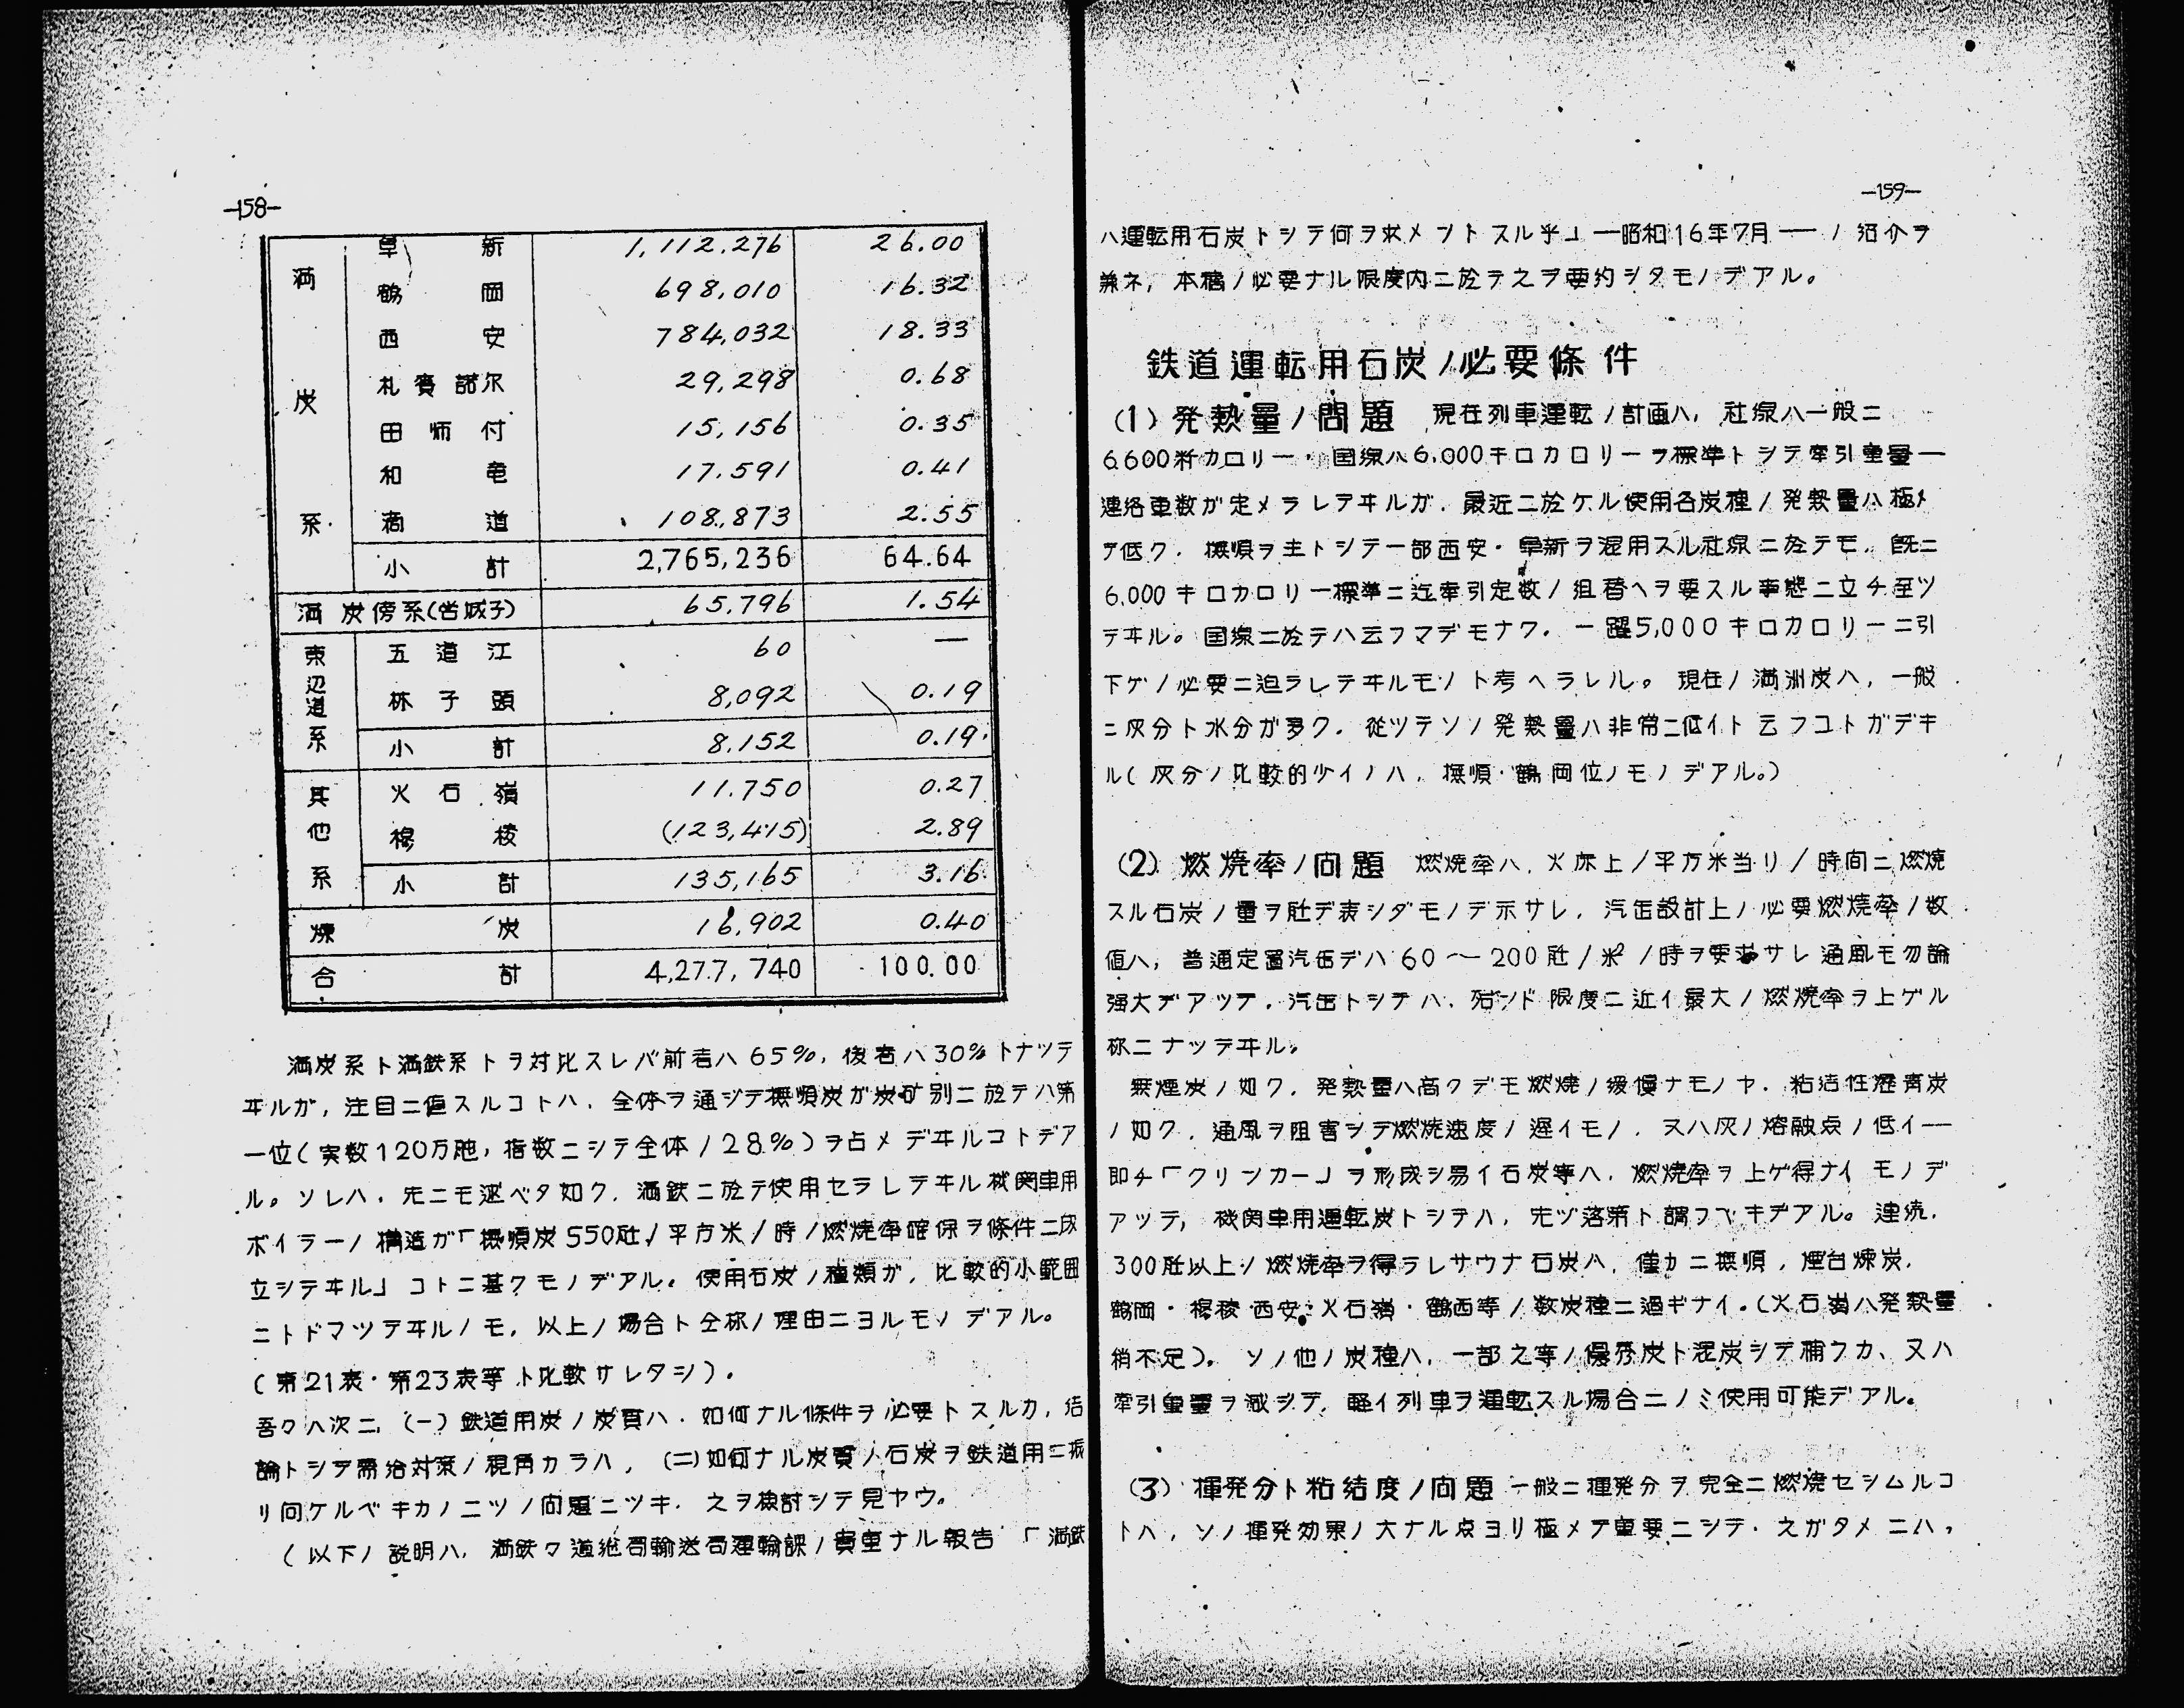 —158—
満炭系 阜新 1,112,276 26.00
鶴岡 698,010 16.32
西安 784,032 18.33
札賚諾尔 29,298 0.68
田師付 15,156 0.35
和竜 17,591 0.41
滴道 108,873 2.55
小計 2,765,236 64.64
満炭傍系(岩城子) 65,796 1.54
東辺道系 五道江 60 —
杯子頭 8,092 0.19
小計 8,152 0.19
其他系 火石嶺 11,750 0.27
穆稜 (123,415) 2.89
小計 135,165 3.16
煉炭 16,902 0.40
合計 4,277,740 100.00
満炭系ト満鉄系トヲ対比スレバ前者ハ65%,後者ハ30%トナツテ
ヰルガ,注目ニ値スルコトハ,全体ヲ通ジテ撫順炭ガ炭矿別ニ於テハ第
一位(実数120万瓲,指数ニシテ全体ノ28%)ヲ占メデヰルコトデア
ル。ソレハ,先ニモ述ベタ如ク,満鉄ニ於テ使用セラレテヰル機関車用
ボイラーノ構造ガ「撫順炭550瓩/平方米/時ノ燃焼率確保ヲ條件ニ成
立シテヰル」コトニ基クモノデアル。使用石炭ノ種類ガ,比較的小範囲
ニトドマツテヰルノモ,以上ノ場合ト仝様ノ理由ニヨルモノデアル。
(第21表・第23表等ト比較サレタシ)。
吾々ハ次ニ,(一)鉄道用炭ノ炭質ハ,如何ナル條件ヲ必要トスルカ,結
論トシテ需給対策ノ視角カラハ,(二)如何ナル炭質ノ石炭ヲ鉄道用ニ振
リ向ケルベキカノ二ツノ問題ニツキ,之ヲ検討シテ見ヤウ。
(以下ノ説明ハ,満鉄々道総局輸送局運輸課ノ貴重ナル報告「満鉄
—159—
ハ運転用石炭トシテ何ヲ求メントスル乎」—昭和16年7月—ノ紹介ヲ
兼ネ,本稿ノ必要ナル限度内ニ於テ之ヲ要約シタモノデアル。
鉄道運転用石炭ノ必要條件
(1)発熱量ノ問題 現在列車運転ノ計画ハ,社線ハ一般ニ
6,600瓩カロリー・国線ハ6,000キロカロリーヲ標準トシテ牽引重量—
連絡車数が定メラレテヰルガ,最近ニ於ケル使用各炭種ノ発熱量ハ極メ
テ低ク,撫順ヲ主トシテ一部西安・阜新ヲ混用スル社線ニ於テモ,既ニ
6,000キロカロリー標準ニ迄牽引定数ノ組替ヘヲ要スル事態ニ立チ至ツ
テヰル。国線ニ於テハ云フマデモナク,一躍5,000キロカロリーニ引
下ゲノ必要ニ迫ラレテヰルモノト考ヘラレル。現在ノ満洲炭ハ,一般
ニ灰分ト水分が多ク,従ツテソノ発熱量ハ非常ニ低イト云フコトガデキ
ル(灰分ノ比較的少イノハ,撫順・鶴岡位ノモノデアル。)
(2)燃焼率ノ問題 燃焼率ハ,火床上ノ平方米当リノ時間ニ燃焼
スル石炭ノ量ヲ瓩デ表シダモノデ示サレ,汽缶設計上ノ必要燃焼率ノ数
値ハ,普通定置汽缶デハ60〜200瓩/米²/時ヲ要求サレ通風モ勿論
強大デアツテ,汽缶トシテハ,殆ンド限度ニ近イ最大ノ燃焼率ヲ上ゲル
様ニナツテヰル。
無煙炭ノ如ク,発熱量ハ高クデモ燃焼ノ緩慢ナモノヤ,粘結性瀝青炭
ノ如ク,通風ヲ阻害シデ燃焼速度ノ遅イモノ,又ハ灰ノ熔融点ノ低イ—
即チ「クリンカー」ヲ形成シ易イ石炭等ハ,燃焼率ヲ上ゲ得ナイモノデ
アツテ,機関車用運転炭トシテハ,先ヅ落第ト謂フベキデアル。連続,
300瓩以上ノ燃焼率ヲ得ラレサウナ石炭ハ,僅カニ撫順,煙台煉炭,
鶴岡・穆稜・西安・火石嶺・鶴西等ノ数炭種ニ過ギナイ。(火石嶺ハ発熱量
稍不足)。ソノ他ノ炭種ハ,一部之等ノ優秀炭ト混炭シテ補フカ、又ハ
牽引重量ヲ減ジテ,軽イ列車ヲ運転スル場合ニノミ使用可能デアル。
(3)揮発分ト粘結度ノ問題 一般ニ揮発分ヲ完全ニ燃焼セシムルコ
トハ,ソノ揮発効果ノ大ナル点ヨリ極メテ重要ニシテ・之ガタメニハ,